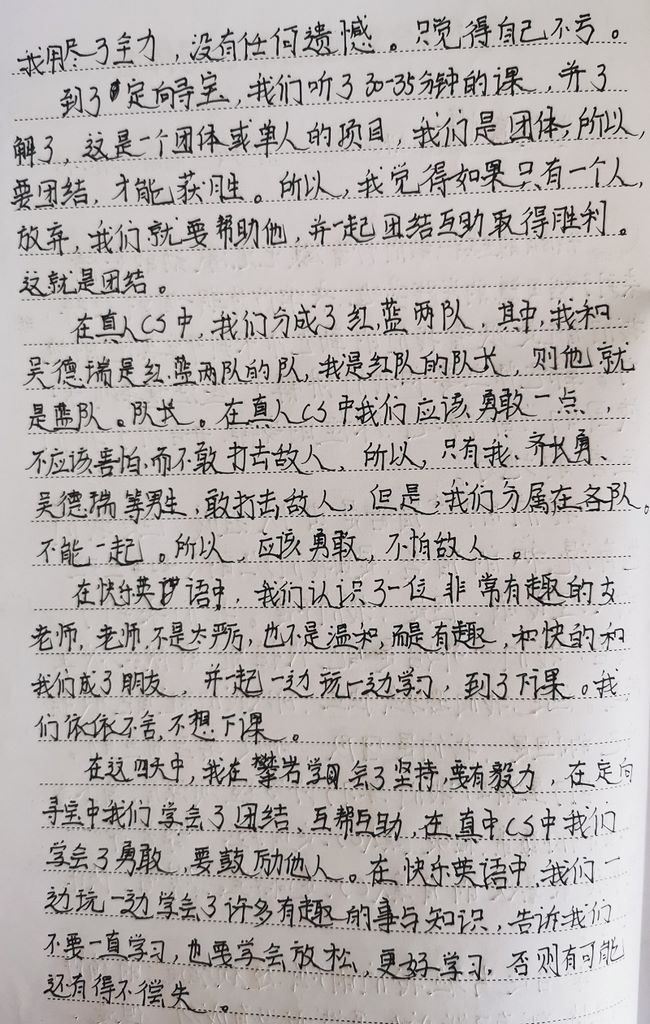 我用尽了全力，没有任何遗憾。只觉得自己不亏。
到了定向寻宝，我们听了30-35分钟的课，并了
解了，这是一个团体或单人的项目，我们是团体，所以，
要团结，才能获胜。所以，我觉得如果只有一个人，
放弃，我们就要帮助他，并一起团结互助取得胜利。
这就是团结。
在真人CS中，我们分成了红，蓝两队，其中，我和
吴德瑞是红、蓝两队的队，我是红队的队长，则他就
是蓝队。队长。在真人CS中我们应该勇敢一点，
不应该害怕，而不敢打击敌人，所以，只有我、齐长勇、
吴德瑞等男生，敢打击敌人，但是，我们分属在各队。
不能一起。所以，应该勇敢，不怕敌人。
在快乐英语中，我们认识了一位非常有趣的女
老师，老师，不是太严厉，也不是温和，而是有趣，和快的和
我们成了朋友，并一起一边玩一边学习，到了下课。我
们依依不舍，不想下课。
在这四天中，我在攀岩学会了坚持，要有毅力，在定向
寻宝中我们学会了团结、互帮互助，在真中CS中我们
学会了勇敢，要鼓励他人。在快乐英语中，我们一
边玩一边学会了许多有趣的事与知识，告诉我们
不要一直学习，也要学会放松，更好学习，否则有可能
还有得不偿失。